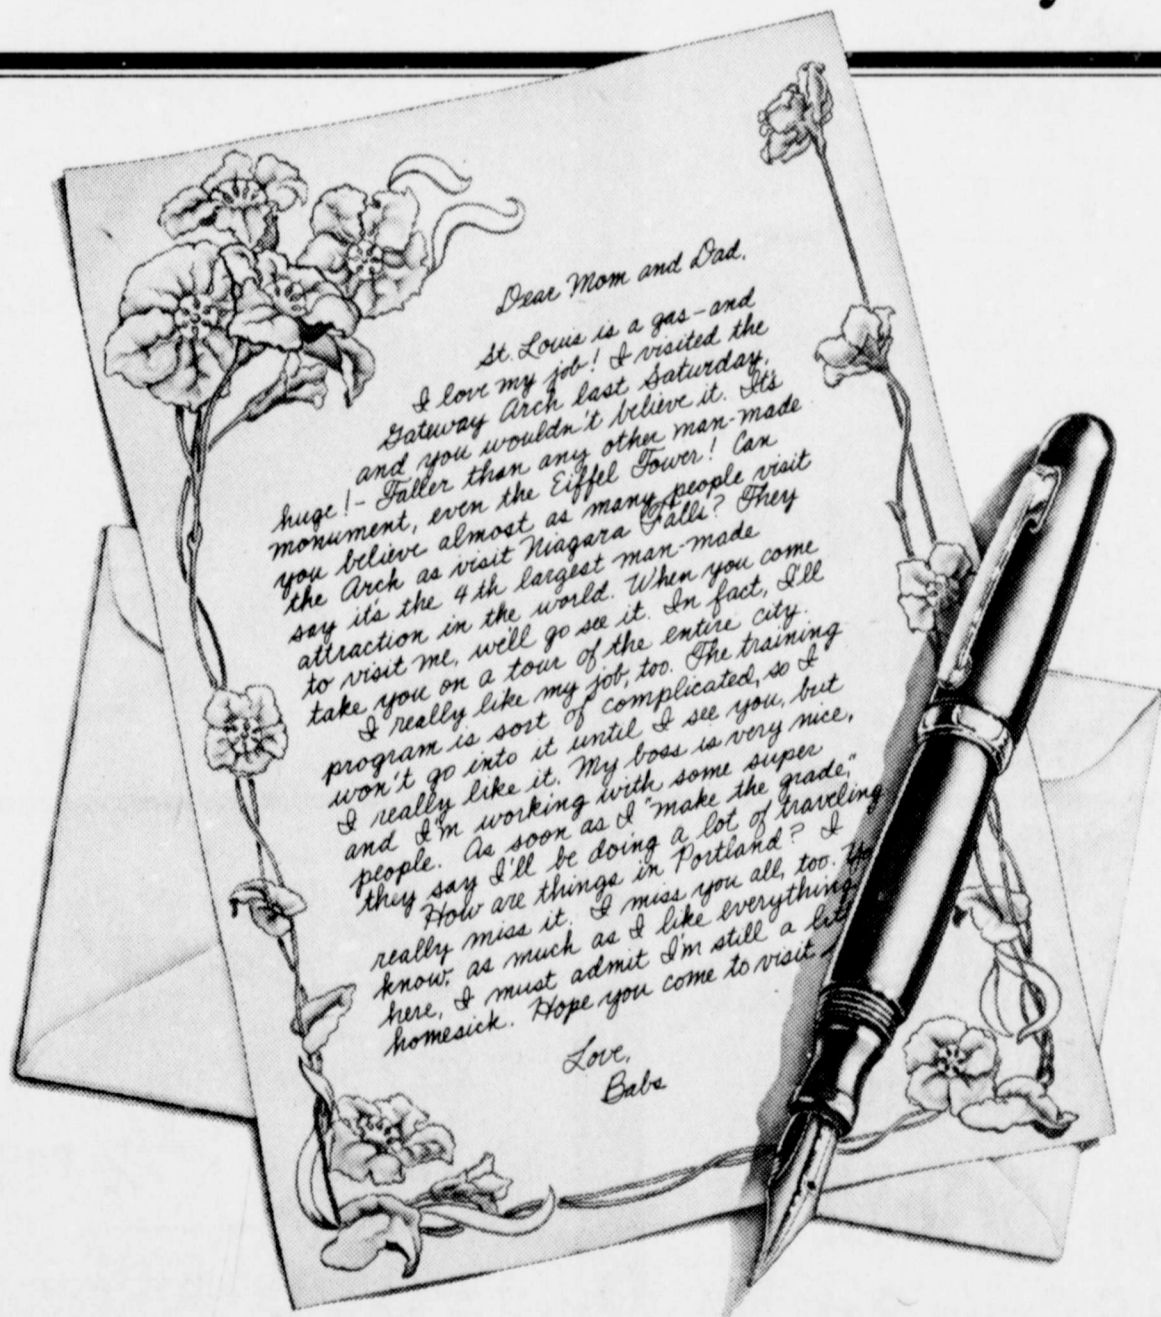 Dear Mom and Dad,
St. Louis is a gas – and
I love my job! I visited the
Gateway Arch last Saturday,
and you wouldn't believe it. It's
huge! – Taller than any other man-made
monument, even the Eiffel Tower! Can
you believe almost as many people visit
the Arch as visit Niagara Falls? They
say it's the 4th largest man-made
attraction in the world. When you come
to visit me, we'll go see it. In fact, I'll
take you on a tour of the entire city.
I really like my job, too. The training
program is sort of complicated, so I
won't go into it until I see you, but
I really like it. My boss is very nice,
and I'm working with some super
people. As soon as I "make the grade,"
they say I'll be doing a lot of traveling
How are things in Portland? I
really miss it. I miss you all, too.
know, as much as I like everything
here, I must admit I'm still a
homesick. Hope you come to visit
Love,
Babs